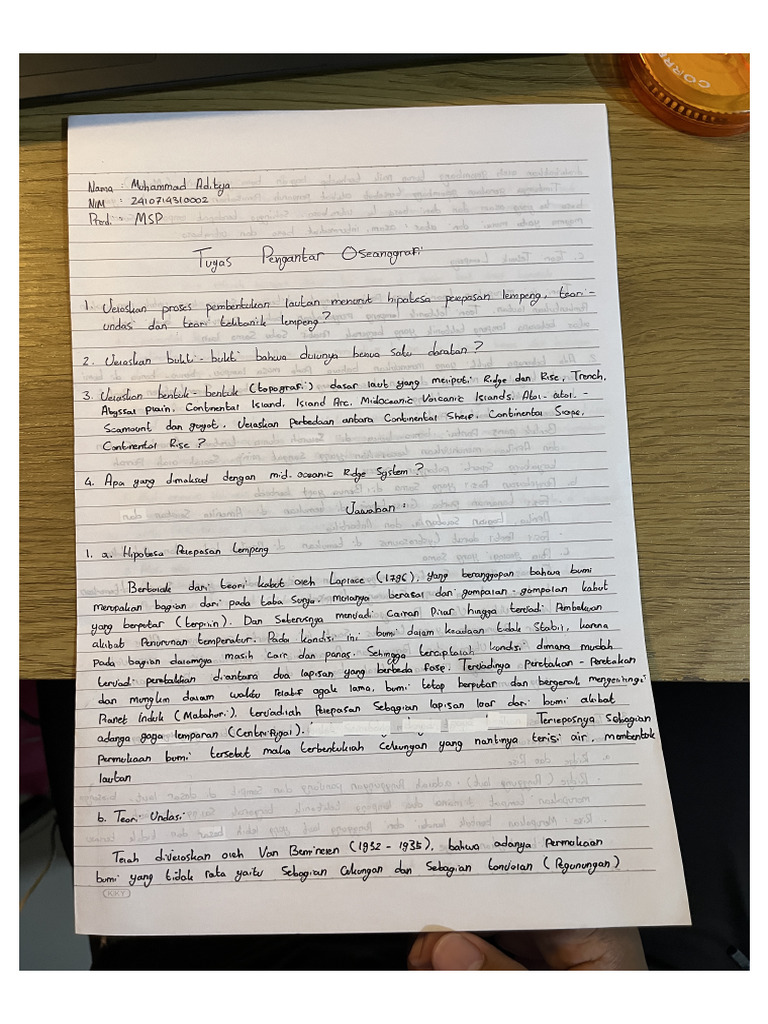 CORRE
Nama : Muhammad Aditya
NIM : 2410714310002
Prodi : MSP
Tugas Pengantar Oseanografi
1. Jelaskan proses pembentukan lautan menurut hipotesa pelepasan lempeng, teori -
undasi dan teori tektonik lempeng ?
2. Jelaskan bukti - bukti bahwa dulunya benua satu daratan ?
3. Jelaskan bentuk - bentuk (topografi) dasar laut yang meliputi Ridge dan Rise, Trench,
Abyssal plain, Continental Island, Island Arc, Midoceanic Volcanic Islands, Atol - atol. -
Seamount dan guyot. Jelaskan Perbedaan antara Continental Shelf, Continental Slope,
Continental Rise ?
4. Apa yang dimaksud dengan mid. oceanic Ridge System ?
Jawaban :
1. a. Hipotesa Pelepasan Lempeng
Bertolak dari teori kabut oleh Laplace (1796), yang beranggapan bahwa bumi
merupakan bagian dari pada tata surya. mulanya berasal dari gumpalan - gumpalan kabut
yang berputar (terpilin). Dan Seterusnya menjadi Cairan Pijar hingga terjadi Pembekuan
akibat Penurunan temperatur. Pada kondisi ini bumi dalam keadaan tidak Stabil, karena
Pada bagian dalamnya masih cair dan panas. Sehingga terciptalah kondisi dimana mudah
terjadi peretakkan diantara dua lapisan yang berbeda fase. Terjadinya Peretakan - Peretakan
dan mungkin dalam waktu relatif agak lama, bumi tetap berputar dan bergerak mengelilingi
Planet induk (Matahari), terjadilah Pelepasan Sebagian lapisan luar dari bumi akibat
adanya gaya lemparan (Centrifugal). Terlepasnya Sebagian
Permukaan bumi tersebut maka terbentuklah Cekungan yang nantinya terisi air, membentuk
lautan
b. Teori Undasi
Telah dijelaskan oleh Van Bemmelen (1932 - 1935), bahwa adanya Permukaan
bumi yang tidak rata yaitu Sebagian Cekungan dan Sebagian tonjolan (Pegunungan)
KIKY